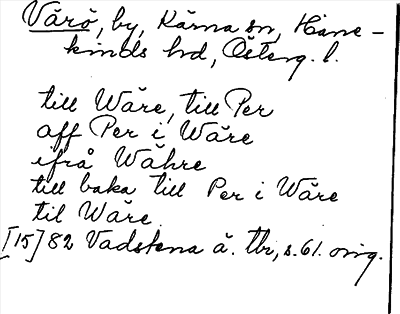 Vårö, by, Kärna sn, Hane-
kinds hd, Österg. l.
till Wåre, till Per
aff Per i Wåre
ifrå Wåhre
till baka till Per i Wåre
til Wåre
[15]82 Vadstena ä. tb, s. 61. orig.